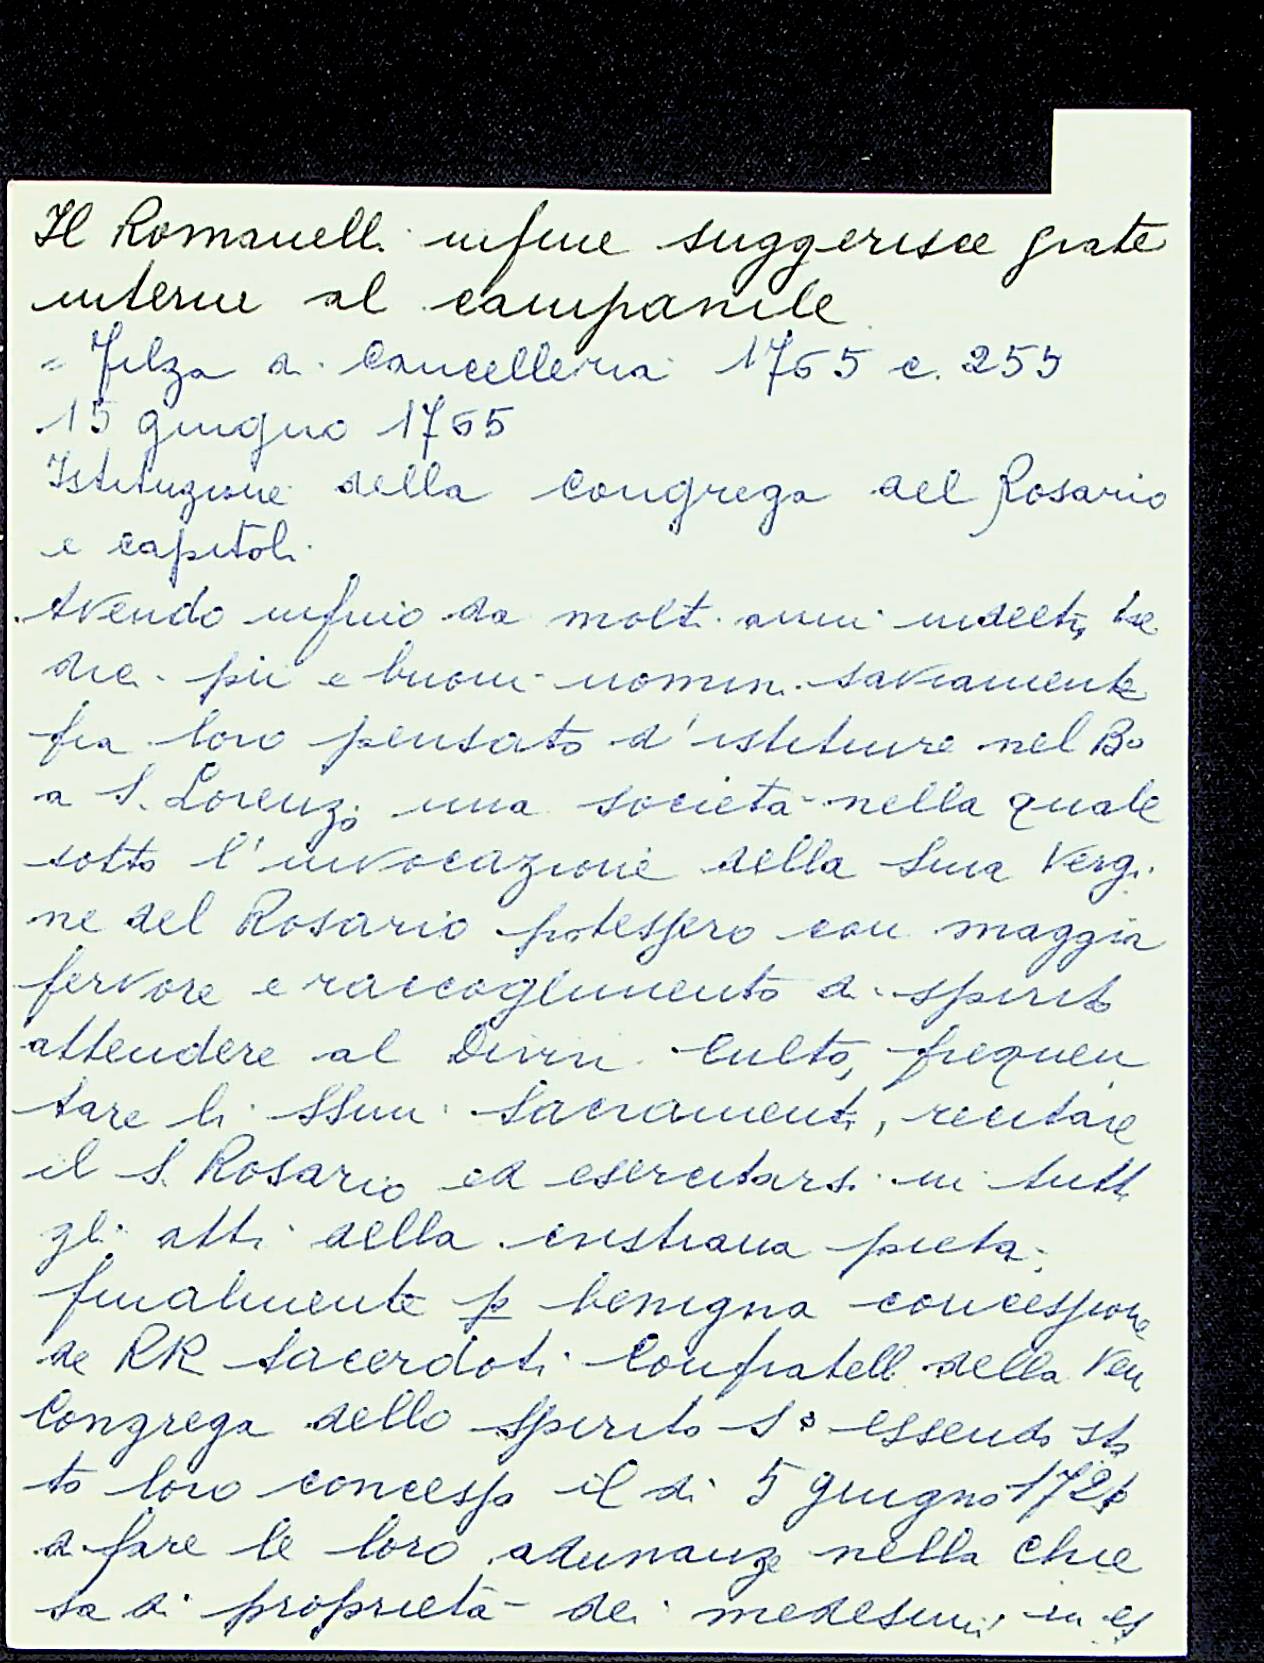 Il Romanelli infine suggerisce grate
interne al campanile
= Filza di Cancelleria 1765 c. 255
15 giugno 1765
Istituzione della congrega del Rosario
e capitoli
Avendo infino da molti anni indietro
pii e buoni uomini saviamente
fra loro pensato d'istituire nel Bo
a S. Lorenzo una società nella quale
sotto l'invocazione della Sma Vergi
ne del Rosario potessero con maggior
fervore e raccoglimento di spirito
attendere al Divin Culto, frequen
tare li SSmi Sacramenti, recitare
il S. Rosario ed esercitarsi in tutti
gli atti della cristiana pietà;
finalmente p benigna concessione
de RR Sacerdoti Confratelli della Ven
Congrega dello Spirito So essendo sta
to loro concesso il dì 5 giugno
di fare le loro adunanze nella Chie
sa di proprietà dei medesimi in es